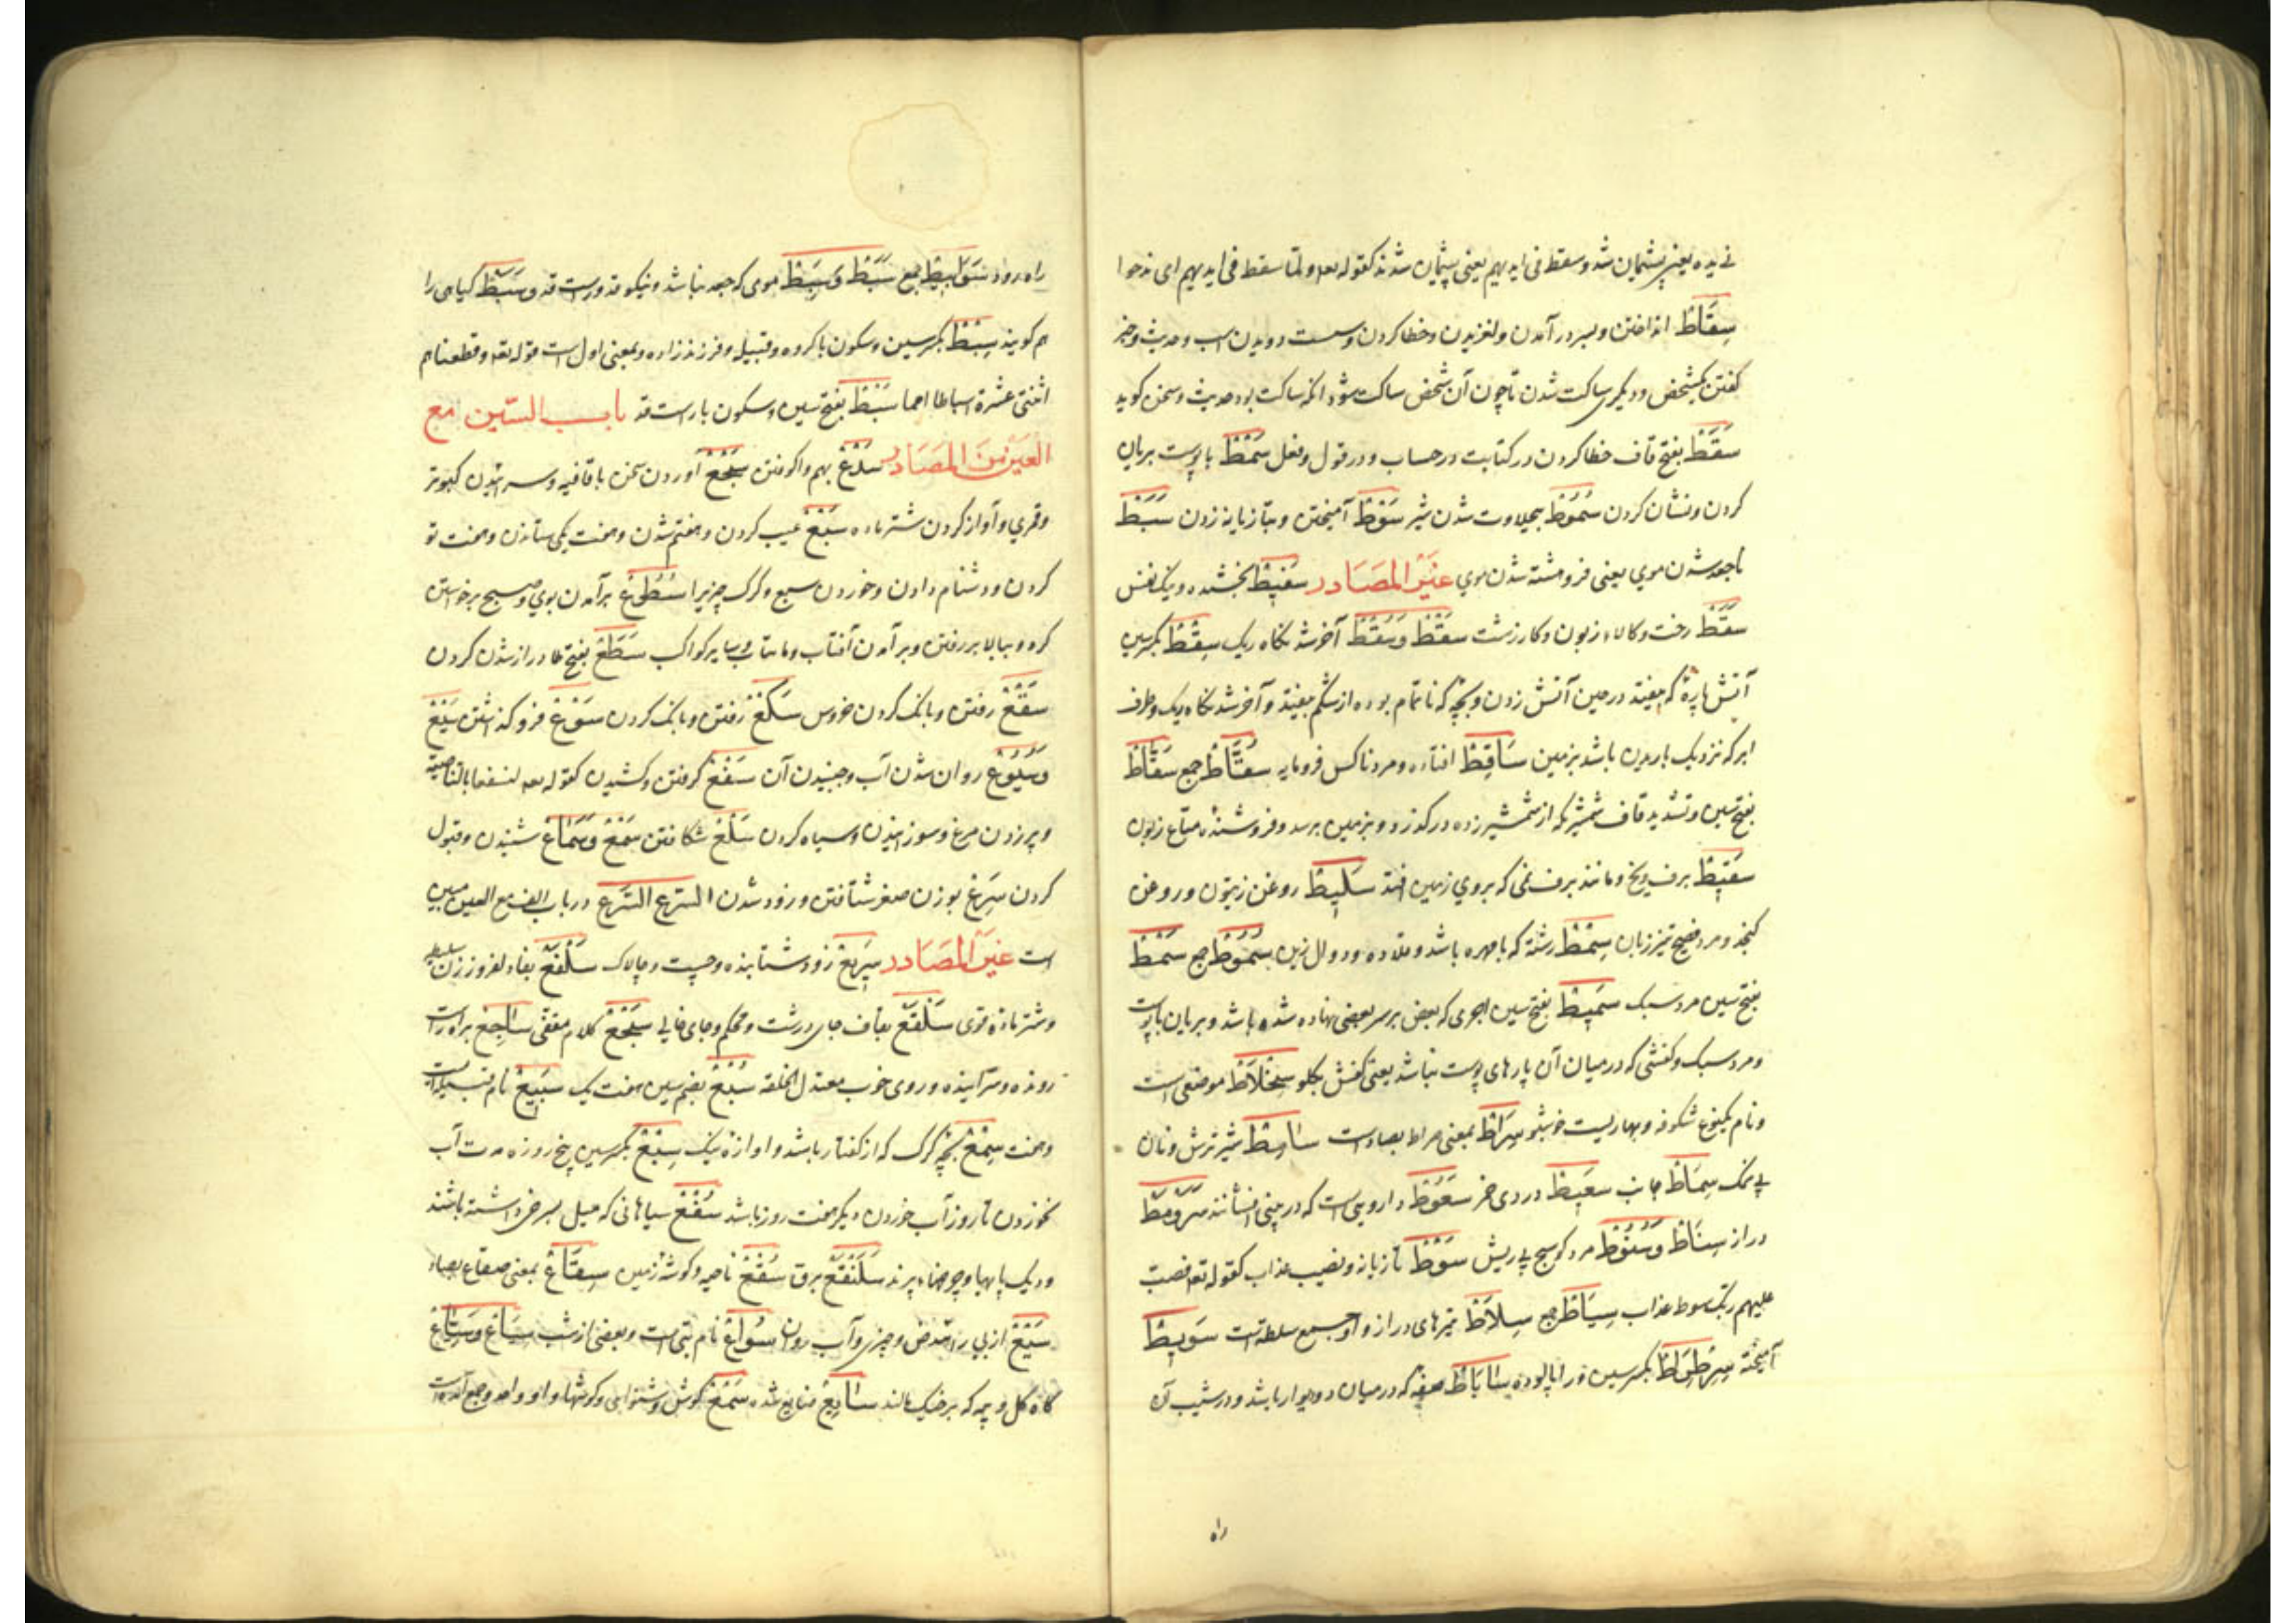 فی یده یعنی پشیمان شد و سقط فی ایدیهم یعنی پشیمان شدند کقوله تعه ولمّا سقط فی ایدیهم ای ندموا
سِقَاط انداختن و بسر در آمدن و لغزیدن و خطا کردن و سست دویدن اسب و حدیث و خبر
کفتن یکشخص و دیکری ساکت شدن تا چون آن شخص ساکت شود انکه ساکت بود حدیث و سخن کوید
سَقَط بفتح قاف خطا کردن در کتابت و در حساب و در قول و فعل سَمْط با پوست بریان
کردن و نشان کردن سُمُوط بیحلاوت شدن شیر سَوْط آمیختن و بتازیانه زدن سَبَط
ناجعد شدن موی یعنی فروهشته شدن موی غَیْر المَصَادر سَقِیط بخشنده و یک نفس
سَقَط رخت و کالاء زبون و کار زشت سَقْط وَسُقْط آخر شدنکاه ریک سِقْط بکسر سین
آتش پارهٔ که بیفتد در حین آتش زدن و بچهٔ که ناتمام بوده از شکم بیفتد و آخر شدنکاه ریک و طرف
ابر که نزدیک باریدن باشد بزمین سَاقِط افتاده و مرد ناکس فرومایه سُقَّاط جمع سَقَّاط
بفتح سین و تشدید قاف شمشیریکه از شمشیر زده در کذرد و بزمین برسد و فروشندهٔ متاع زبون
سَقِیط برف و یخ و مانند برف نمی که بروی زمین افتد سَلِیط روغن زیتون و روغن
کنجد و مرد فصیح تیز زبان سِمْط رشته که با مهره باشد و قلاده و دوال زین سُمُوط جمع سَمْط
بفتح سین مرد سبک سَمِیط بفتح سین اجری که بعض بر سر بعضی نهاده شده باشد و بریان با پوست
و مرد سبک و کفشی که در میان آن پارهای پوست نباشد یعنی کفش یکلو سِخْلَاط موضعی است
و نام یکنوع شکوفه و بهاریست خوشبو سِرَاط بمعنی صراط بصاد است سَامِط شیر ترش و نان
بی نمک سِمَاط جانب سَعِیط دردی خمر سَعُوط دارویی است که در بینی افشانند سَرَوْمَط
دراز سِنَاط وَسَنُوط مرد کوسج بی ریش سَوْط تازیانه و نصیب عذاب کقوله تعه فصبّ
علیهم ربّک سوط عذاب سِیَاط جمع سِلَاط تیرهای دراز و او جمع سلطه است سَوِیط
آمیخته سِرِطْرَاط بکسر سین و را پالوده سَابَاط صفهٔ که در میان دو دیوار باشد و در شیب آن
راه
راه رود سَوَابِیط جمع سَبَط وَسَبِط موی که جعد نباشد و نیکو قد و راست قد وسَبَط کیاهی را
هم کویند سِبْط بکسر سین و سکون با کروه و قبیله و فرزند زاده و بمعنی اول است قوله تعه و قطعناهم
اثنتی عشرة اسباطا امما سَبْط بفتح سین و سکون با راست قد باب السّین مع
العَیْن مِنَ المَصَادر سَلْع بهم واکوفتن سَجْع آوردن سخن با قافیه و سراییدن کبوتر
و قمری و آواز کردن شتر ماده سَبْع عیب کردن و هفتم شدن و هفت یکی ستاندن و هفت تو
کردن و دشنام دادن و خوردن سبع و کرک چیزیرا سُطُوع برآمدن بوی و صبح و برخواستن
کرد و ببالا بر رفتن و برآمدن آفتاب و ماهتاب و سایر کواکب سَطَع بفتح طا دراز شدن کردن
سَقْع رفتن و بانک کردن خروس سَکْع رفتن و بانک کردن سَوْع فرو کذاشتن سَیْع
وَسُیُوع روان شدن آب و جنبیدن آن سَفْع کرفتن و کشیدن کقوله تعه لنسفعا بالناصیة
و پر زدن مرغ و سوزانیدن و سیاه کردن سَلْع شکافتن سَمْع وَسَمَاع شنیدن و قبول
کردن سِرَع بوزن صغر شتافتن و زود شدن السَرع السَرع در باب الف مع العین مبین
است غَیْر المَصَادر سَرِیع زود شتابنده و چست و چالاک سَلْفَع بفاء لغز و زن سلیط
و شتر مادهٔ قوی سَلْقَع بقاف جای درشت و محکم و جای خالی سَجْع کلام مقفی سَاجِع براه راست
رونده و سراینده و روی خوب معتدل الخلقه سُبْع بضم سین هفت یک سَبِیع نام قبیله است
و هفت سِمْع بچهٔ کرک که از کفتار باشد و اوازهٔ نیک سِبْع بکسر سین پنج روزه مدت آب
نخوردن تا روز آب خوردن دیکر هفت روز باشد سُفْع سیاهانی که میل بسرخی داشته باشند
و دیک پایها و چوجهاء پرند سَلَنْقَع برق سُقْع ناحیه و کوشهٔ زمین سِقَاع بمعنی صقاع بصاد
سَیْع از پی راه شدن و چیزی و آب روان سُوَاع نام بتی است و بعضی از شب سِیَاع وَسَیَاع
کاه کل و پیه که بر خیک مالند سَایِع ضایع شده سَمْع کوش و شنوایی و کوشها و او واحد و جمع آمده است